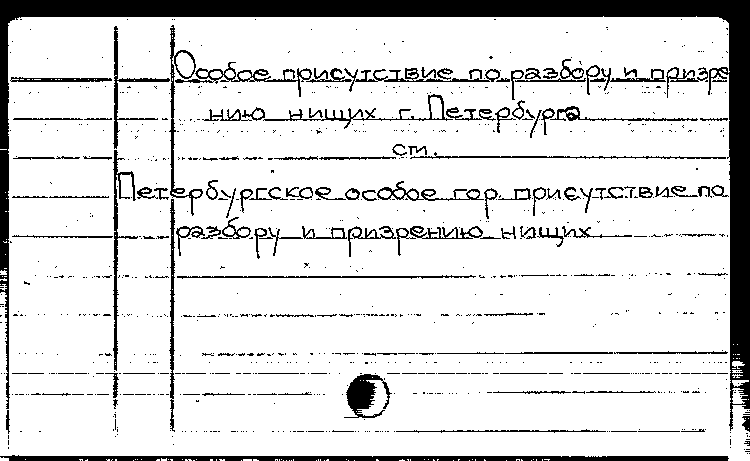 Особое присутствие по разбору и призре
нию нищих г. Петербурга
см.
Петербургское особое гор. присутствие по
разбору и призрению нищих.